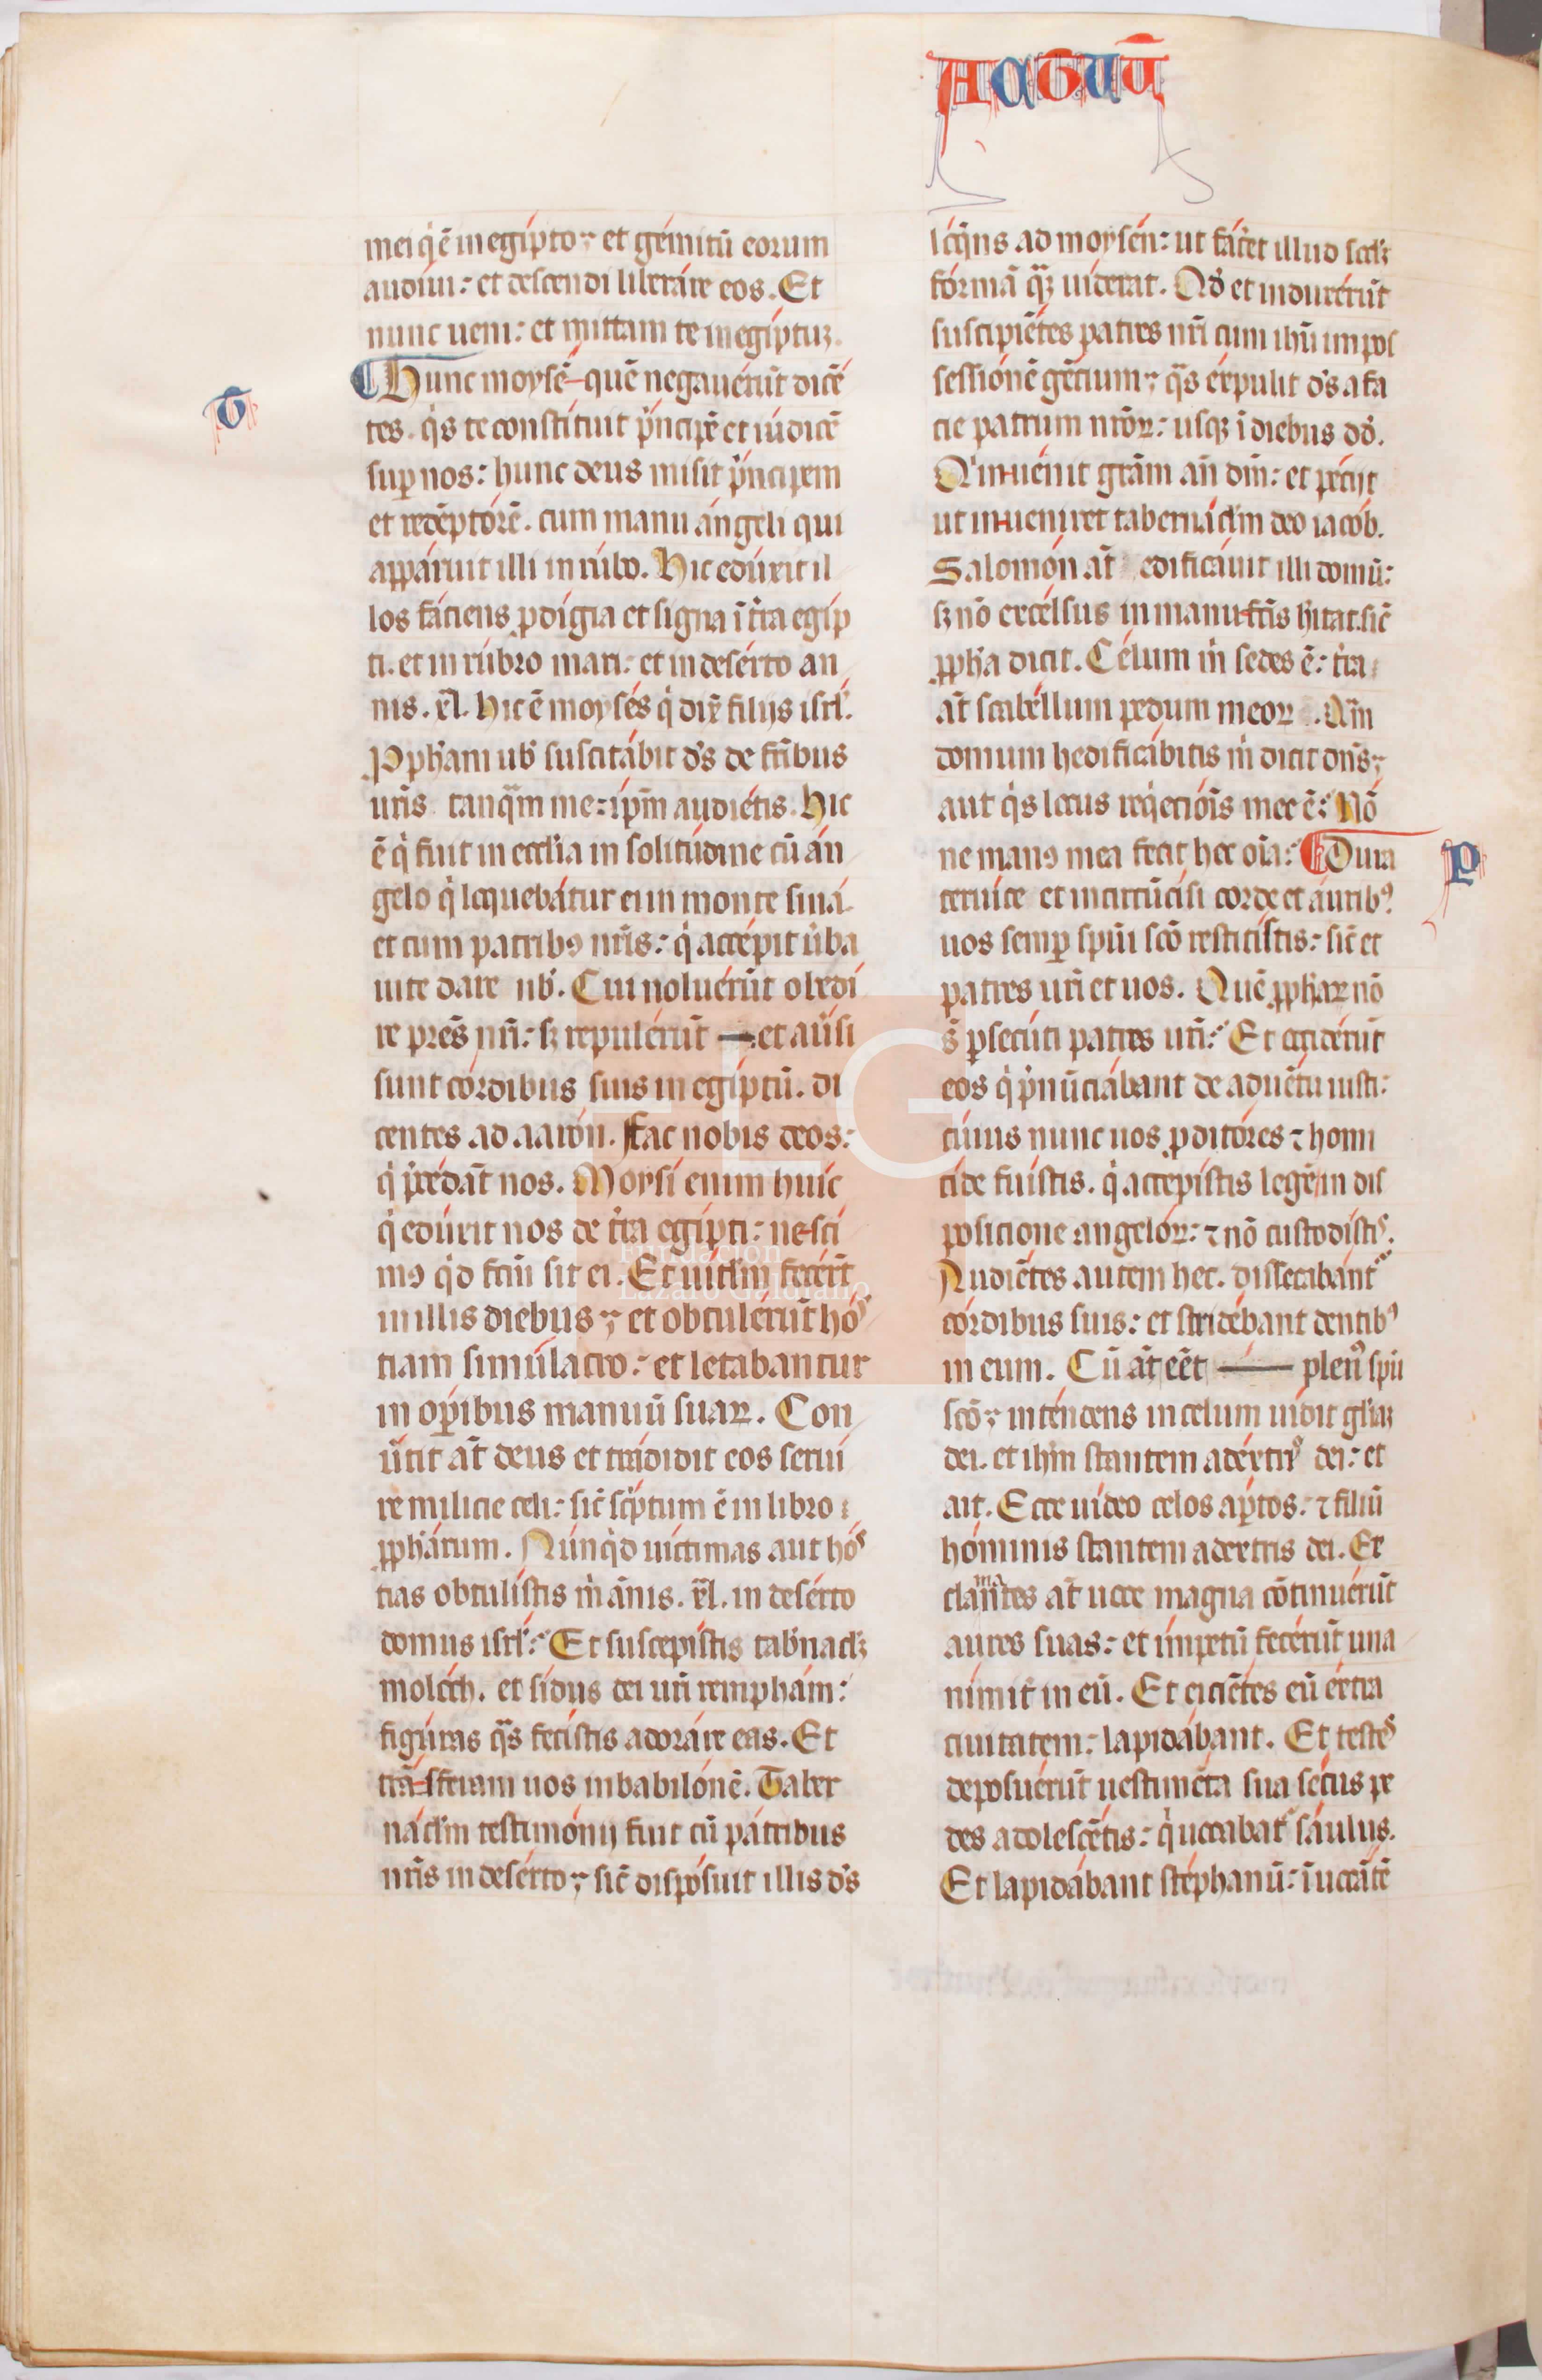 Actuū
mei q̇ ē in egipto: et gemitū eorum
audiui: et descendi liberare eos. Et
nunc ueni: et mittam te in egiptuꝫ.
T
Hunc moysē quē negauerūt dicē
tes. q̇s te constituit pͥncipē et iudicē
suꝑ nos: hunc deus misit pͥncipem
et redēptorē. cum manu angeli qui
apparuit illi in rubo. Hic eduxit il
los faciens ꝓdigia et signa ī tͥra egip
ti. et in rubro mari: et in deserto an
nis .xl. Hic ē moyses q̇ dix̄ filijs isrl̓.
Ꝓph̄am uob̓ suscitabit ds̓ de frībus
ur̄is tanqͣm me: ip̄m audietis. Hic
ē q̇ fuit in eccl̓ia in solitudine cū an
gelo q̇ loquebatur ei in monte sina.
et cum patribꝰ nr̄is: q̇ accepit ūba
uite dare nob̓. Cui noluerūt obedi
re pr̄es nr̄i: sꝫ repulerūt — et auersi
sunt cordibus suis in egiptū. di
centes ad aaron. Fac nobis deos:
q̇ p̄cedāt nos. Moysi enim huic
q̇ eduxit nos de tͥra egipti: nesci
mꝰ qͥd fc̄m sit ei. Et uitl̓m fecer̄t
in illis diebus: et obtulerūt hoˢ
tiam simulacro: et letabantur
in oꝑibus manuū suaꝝ. Con
ūtit at̄ deus et tradidit eos serui
re milicie celi: sic̄ scͥptum ē in libro
ꝓph̄arum. Nunqͥd uictimas aut hoˢ
tias obtulistis m̓ ānis .xl. in deserto
domus isrl̓: Et suscepistis tab̓nacl̓ꝫ
moloch. et sidus dei ur̄i rempham:
figuras qͣs fecistis adorare eas. Et
trā-sferam uos in babilonē. Taber
nacl̓m testimonij fuit cū patribus
nr̄is in deserto: sic̄ disposuit illis ds̓
loq̄ns ad moysen: ut fac̓et illud scd̓ꝫ
formā qͣꝫ uiderat. Qd̓ et induxerūt
suscipiētes patres nr̄i cum ihū in pos
sessionē gēcium: qͣs expulit ds̓ a fa
cie patrum nr̄oꝝ: usqꝫ ī diebus dd̓.
Q' inuenit gr̄am an̄ dm̄: et pecijt
ut inueniret tabernacl̓m deo iacob.
Salomon at̄ edificauit illi domū:
sꝫ nō excelsus in manufc̄is hītat. sic̄
ꝓph̄a dicit. Celum m̓ sedes ē: tͥra
at̄ scabellum pedum meoꝝ. Qm̄
domum hedificabitis m̓ dicit dn̄s:
aut q̇s locus req̇ecioīs mee ē: Nō
ne manꝰ mea fecit hec oīa: Dura
P
ceruice et incircūcisi corde et auribꝰ
uos semꝑ spūi scō restitistis: sic̄ et
patres ur̄i et uos. Quē ꝓph̄aꝝ nō
s̄ ꝑsecuti patres ur̄i: Et occiderūt
eos q̇ p̄nūciabant de aduētu iusti:
cuius nunc uos ꝓditores ⁊ homi
cide fuistis. q̇ accepistis legē in dis
posicione angeloꝝ: ⁊ nō custodistiˢ.
Audiētes autem hec. dissecabantᷣ
cordibus suis: et stridebant dentibꝰ
in eum. Cū at̄ eēt — plenꝰ spū
scō: intendens in celum uidit gl̓iaꝫ
dei. et ihm̄ stantem a dextrͥˢ dei: et
ait. Ecce uideo celos aꝑtos: ⁊ filiū
hominis stantem a dextris dei. Ex
clamantes at̄ uoce magna cōtinuerūt
aures suas: et impetū fecerūt una
nimit̓ in eū. Et eiciētes eū extra
ciuitatem: lapidabant. Et testeˢ
deposuerūt uestimēta sua secus pe
des adolescētis: q̇ uocabatᷣ saulus.
Et lapidabant stephanū: īuocātē
Fundación
Lázaro Galdiano